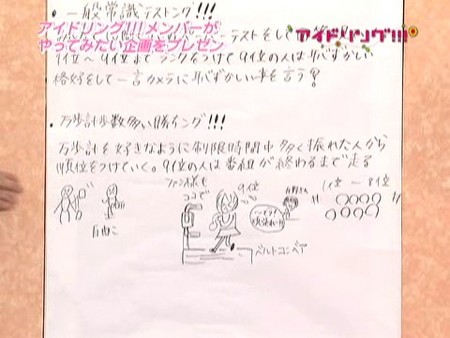 ・一般常識テストング!!!
アイドリング!!!メンバーが
やってみたい企画をプレゼン
アイドリング!!!
テストをして
1位〜9位までランクをつけて9位の人は恥ずかしい
格好をして一言カメラに恥ずかしい事を言う?
・万歩計歩数多い勝ィング!!!
万歩計を好きなように制限時間中多く振れた人から
順位をつけていく。9位の人は番組が終わるまで走る
ファン様も
ココで
9位
1位〜8位
自由に
ベルトコンベア